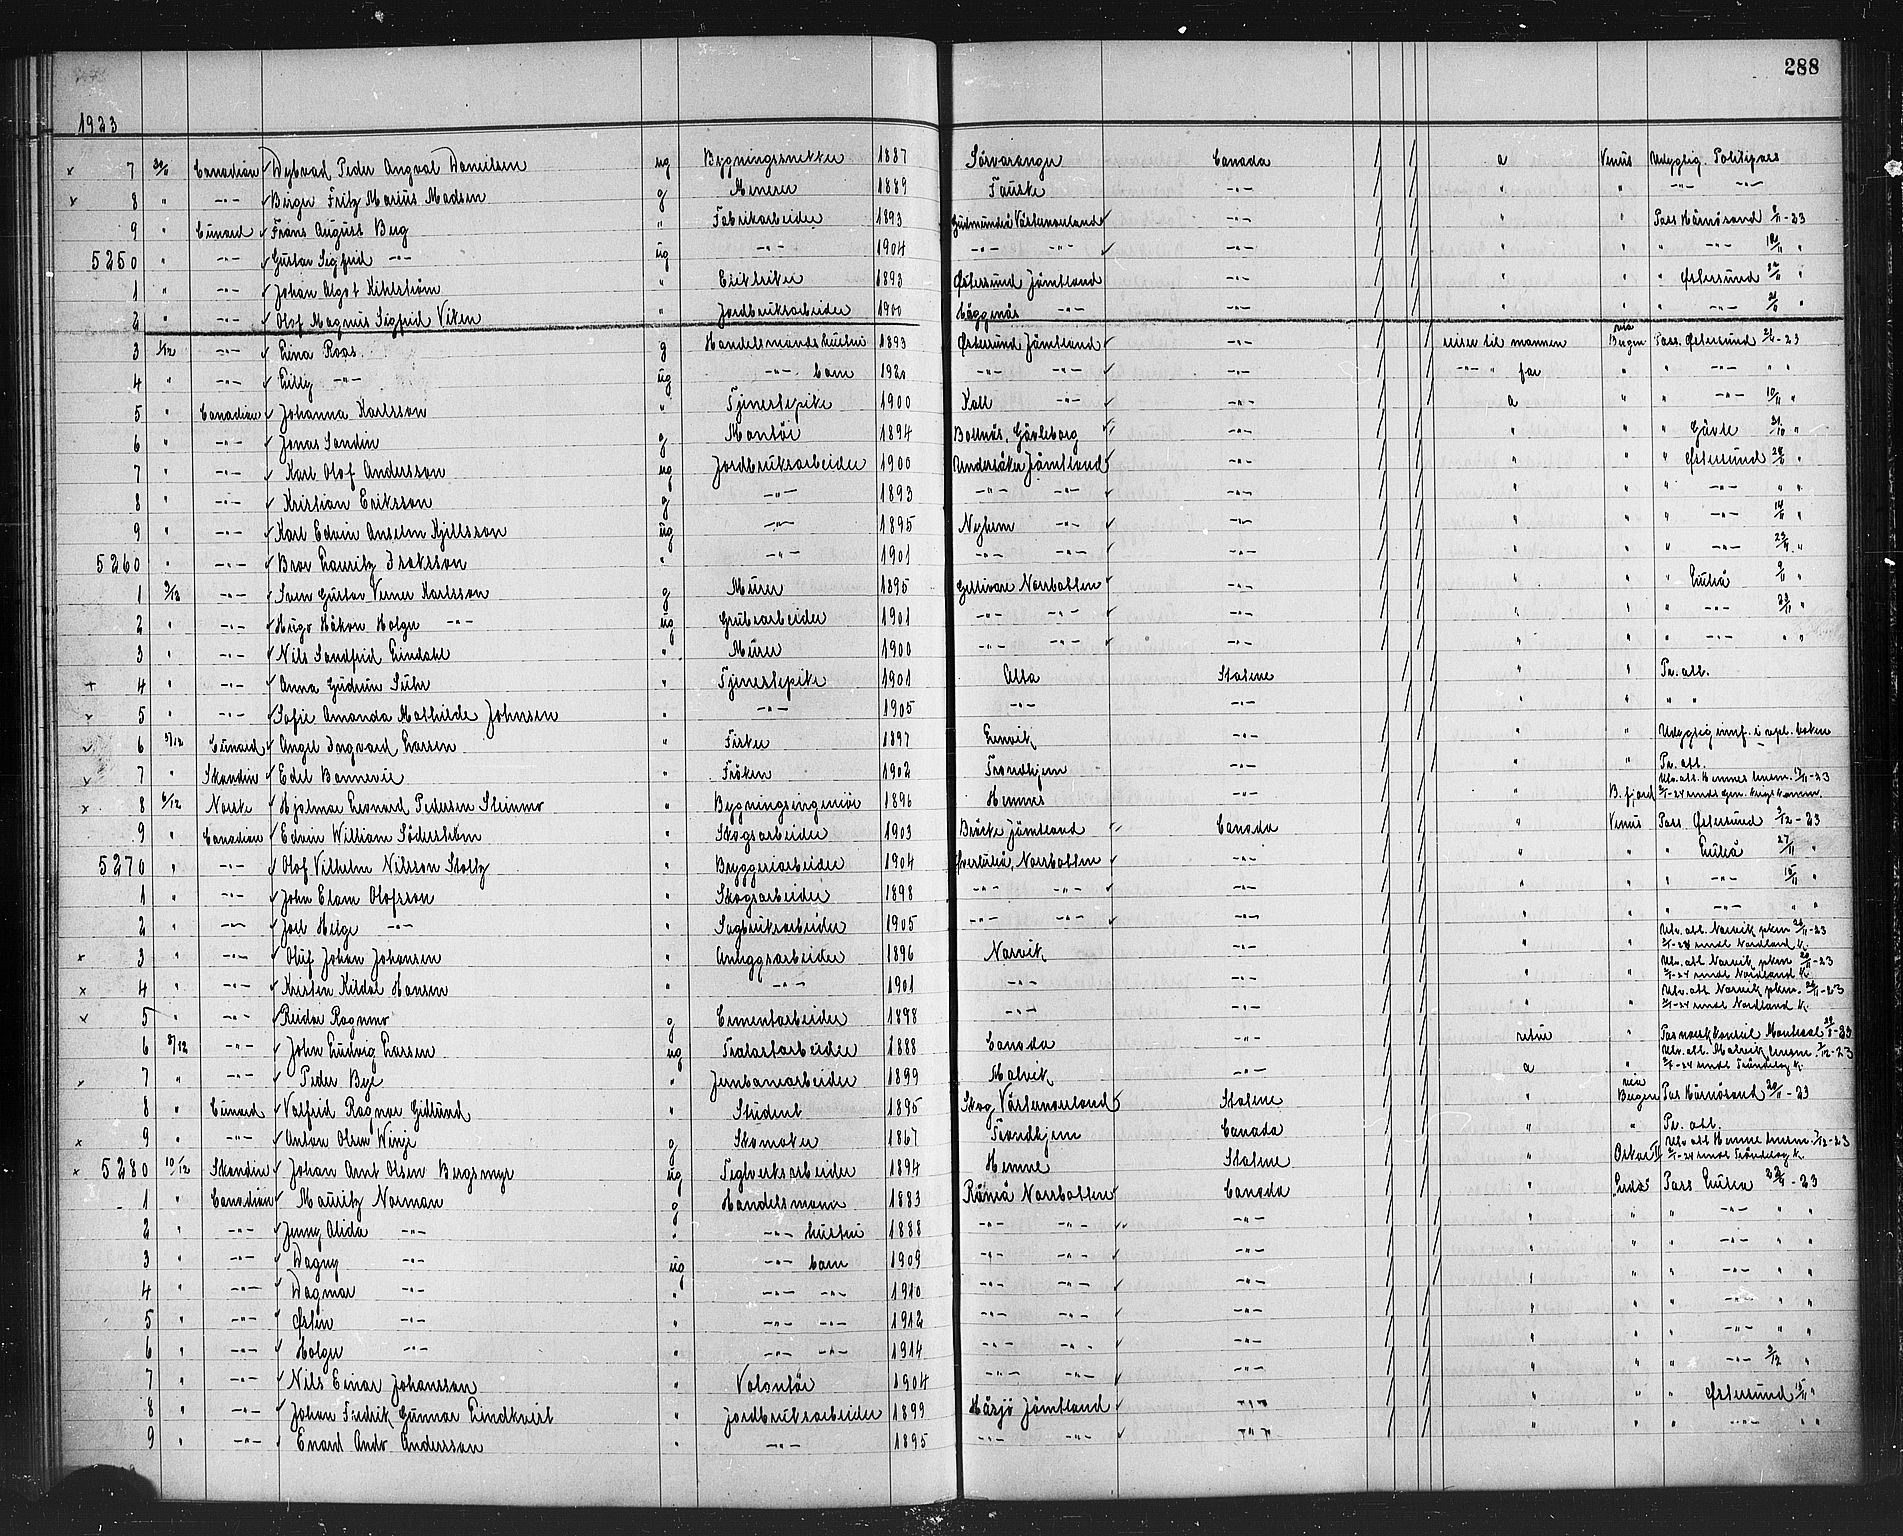 288
1923
7 30/11 Canadian Dybvad Peder Angval Danielsen ug Bygningssnekker 1887 Sörvaranger Canada a Venus Udygtig. Politipas
8 " -"- Berger Fritz Marius Madsen g Minerer 1889 Fauske -"- " " -"- -"-
9 " Cunard Frans August Berg " Fabrikarbeider 1893 Gudmundrå Västernorrland -"- " " Pass Härnösand 8/11-23
5250 " -"- Gustav Sigfrid -"- ug -"- 1904 -"- -"- -"- " " " -"- "
1 " -"- Johan Algot Kihlström " Elektriker 1893 Østersund Jämtland -"- " " " Østersund 22/11 "
2 " -"- Olof Magnus Sigfrid Viken " Jordbruksarbeider 1900 Häggenås -"- -"- " " " -"- "
3 1/12 -"- Lina Roos g Handelsmands hustru 1893 Østersund Jämtland -"- reiser til mannen via Bergen Pass. Østersund -23
4 " -"- Lilly -"- ug -"- barn 1920 -"- -"- -"- -"- " far " " -"- " "
5 " Canadian Johanna Karlsson " Tjenestepike 1900 Kall -"- -"- a " " -"- 10/11 "
6 " -"- Jonas Sandin g Montör 1894 Bollnäs, Gävleborg -"- " " " Gävle 31/10 "
7 " -"- Karl Olof Andersson ug Jordbruksarbeider 1900 Undersåker Jämtland -"- " " " Østersund "
8 " -"- Kristian Eriksson g -"- 1893 -"- -"- -"- " " " -"- " "
9 " -"- Karl Edvin Anselm Kjellsson ug -"- 1895 Nyhem -"- -"- " " " -"- 14/11 "
5260 " -"- Bror Lauritz Isaksson " -"- 1901 -"- -"- -"- " " " -"- "
1 3/12 -"- Sven Gustav Verner Karlsson g Murer 1895 Gellivare Norrbotten -"- " " " Luleå 9/11 "
2 " -"- Hugo Håkon Holger -"- ug Grubearbeider 1901 -"- -"- -"- " " " -"- 23/11 "
3 " -"- Nils Sandfrid Lindahl " Murer 1900 -"- -"- -"- " " " -"- " "
4 " -"- Anna Gudrun Suhr " Tjenestepike 1901 Alta Statene " " Pr. att.
5 " -"- Sofie Amanda Mathilde Johnsen " -"- 1905 -"- -"- " " " "
6 5/12 Cunard Angel Ingvard Larsen " Fisker 1897 Lenvik -"- " " Udygtig innf. i vpl. boken
7 " Skandin Edel Bonnevie " Fröken 1902 Trondhjem -"- " " Pr. att.
8 6/12 Norske Hjalmar Leonard Pedersen Steinmo " Bygningsingeniör 1896 Hemnes -"- " B.fjord Utv. att. Hemnes lensm. -23
9 " Canadian Edvin William Söderström " Skogsarbeider 1903 Bräcke Jämtland Canada " Venus Pass Østersund 3/12-23
5270 " -"- Olof Vilhelm Nilsson Stoltz " Bryggeriarbeider 1904 Överluleå, Norrbotten -"- " " " Luleå 27/11 "
1 " -"- John Elam Olofsson " Skogsarbeider 1898 -"- -"- -"- " " " -"- 15/11 "
2 " -"- Joel Helge -"- " Sagbruksarbeider 1905 -"- -"- -"- " " " -"- " "
3 " -"- Oluf Johan Johansen " Anleggsarbeider 1896 Narvik -"- " " Utv. att. Narvik pkm. -23 2/1-24 undt Nordland k.
4 " -"- Kristen Kildal Hansen " -"- 1901 -"- -"- " " Utv. att Narvik pkm. 20/11-23 2/1-24 undt Nordland k.
5 " -"- Reidar Ragnmo g Cementarbeider 1898 -"- -"- " " Utv. att Narvik pkm. -23 2/1-24 undt Nordland k.
6 8/12 -"- John Ludvig Larsen ug Traktorarbeider 1888 Canada -"- retur " Pas norsk konsul Montreal -23
7 " -"- Peder Bye " Jernbanearbeider 1899 Malvik -"- a " Utv. att. Malvik lensm. 7/12-23 undt Tröndelag k.
8 " Cunard Valfrid Ragnar Gidlund " Student 1895 Skog Västernorrland Statene " via Bergen Pas Härnösand 20/11-23
9 " -"- Anton Olsen Winje g Skomaker 1867 Trondhjem Canada " " Pr. att.
5280 10/12 Skandin Johan Arnt Olsen Bergsmyr ug Teglverksarbeider 1894 Hemne Statene " Oskar II Utv. att Hemne lensm. -23 undt Tröndelag k.
1 " Canadian Mauritz Norman g Handelsmann 1883 Råneå Norrbotten Canada " Pass Luleå -23
2 " -"- Jenny Alida -"- " -"- hustru 1888 -"- -"- -"- " " " -"- " "
3 " -"- Dagny -"- ug -"- barn 1909 -"- -"- -"- " " " -"- " "
4 " -"- Dagmar -"- " -"- -"- 1910 -"- -"- -"- " " " -"- " "
5 " -"- Østen -"- " -"- -"- 1912 -"- -"- -"- " " " -"- " "
6 " -"- Holger -"- " -"- -"- 1914 -"- -"- -"- " " " -"- " "
7 " -"- Nils Einar Johansson " Volontör 1904 -"- -"- -"- " " " -"- 3/12 "
8 " -"- Johan Fredrik Gunnar Lindkvist " Jordbruksarbeider 1899 Håsjö Jämtland -"- " " " Østersund 15/11 "
9 " -"- Enard Andr. Andersson " -"- 1895 -"- -"- -"- " " " -"- " "